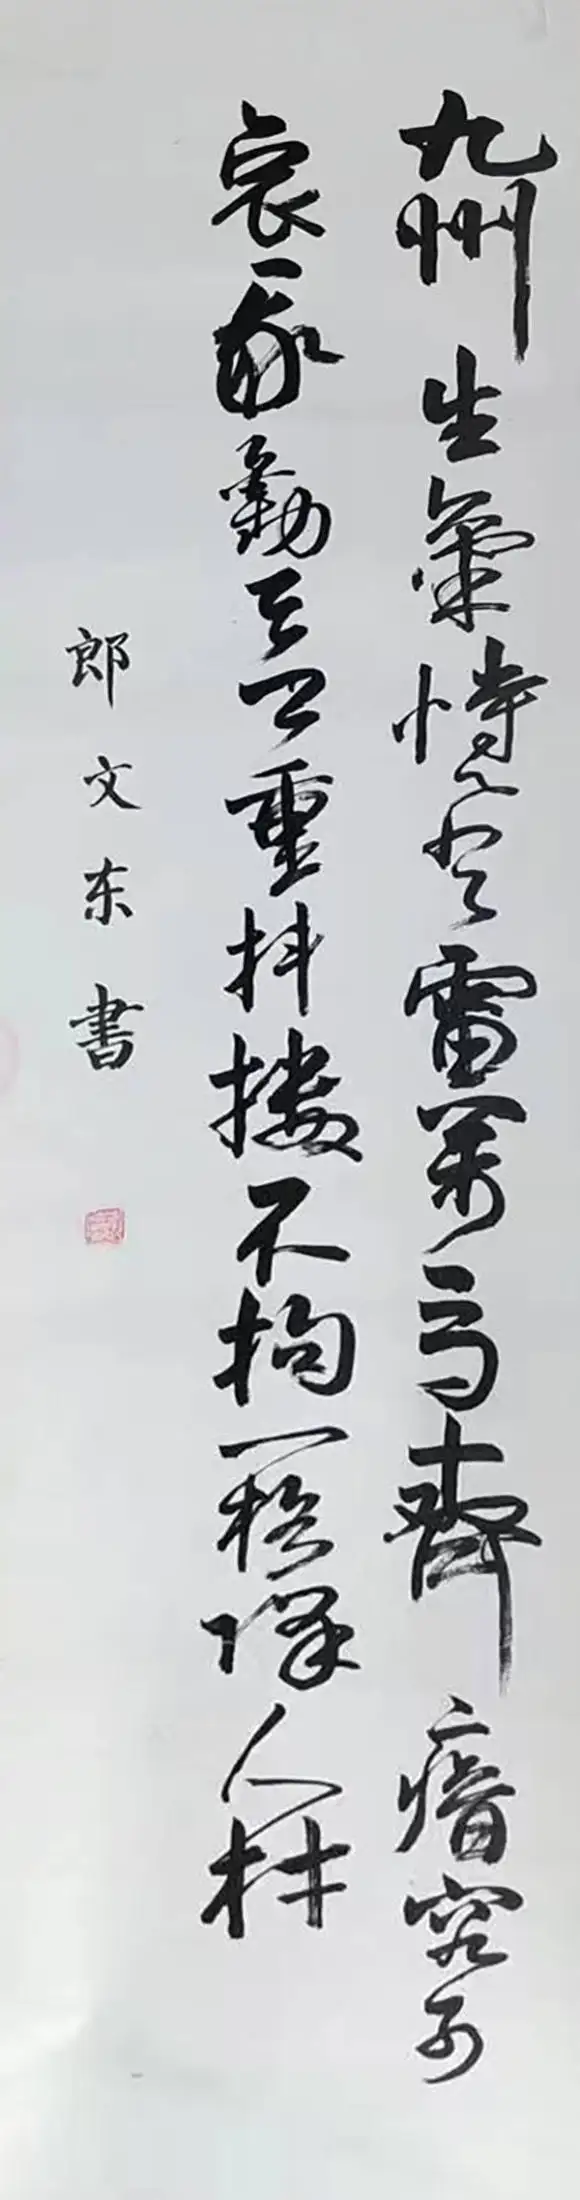 九州生氣恃風雷萬马齊瘖究可
哀我勸天公重抖擞不拘一格降人材
郎文东書